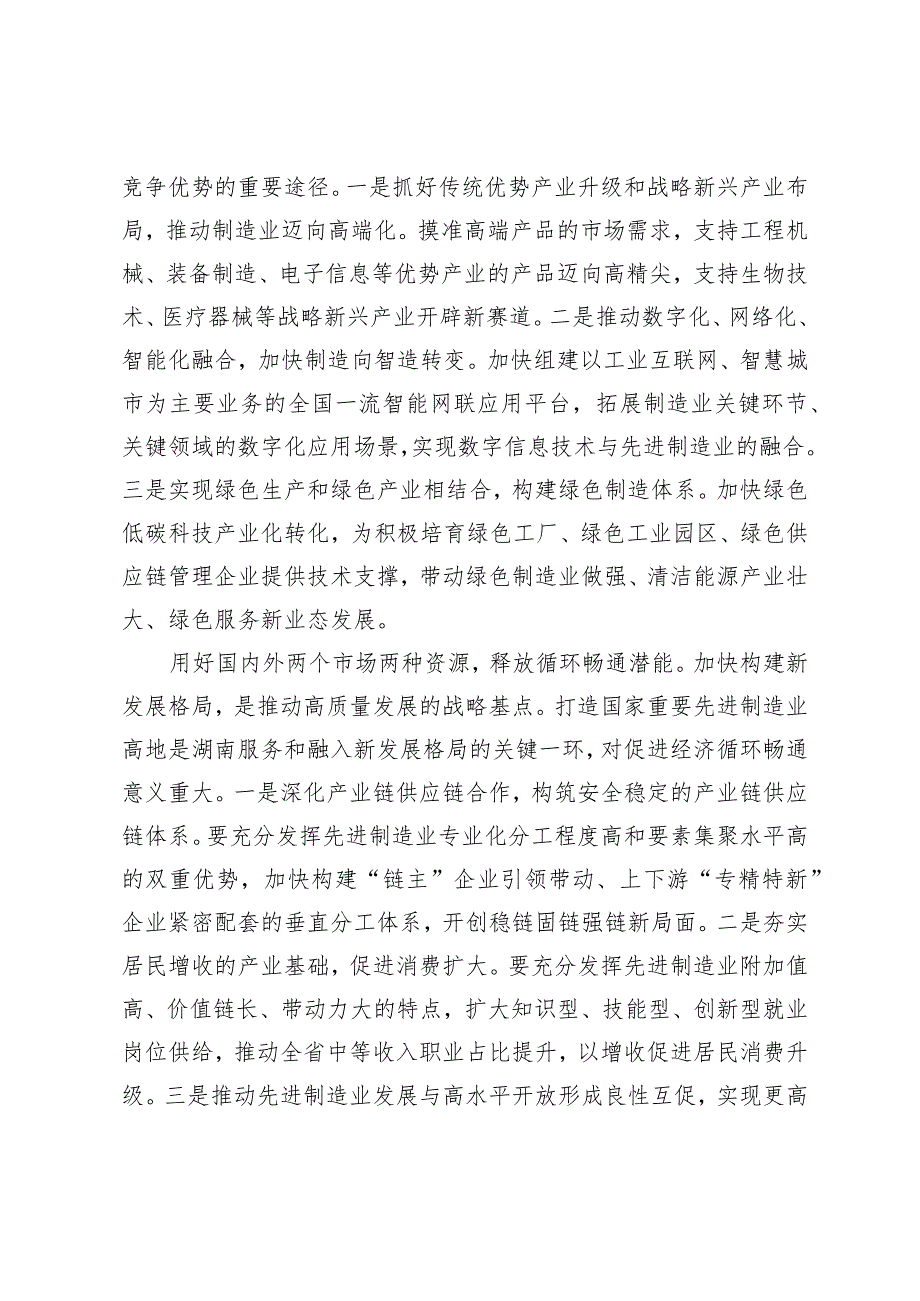 竞争优势的重要途径。一是抓好传统优势产业升级和战略新兴产业布
局，推动制造业迈向高端化。摸准高端产品的市场需求，支持工程机
械、装备制造、电子信息等优势产业的产品迈向高精尖，支持生物技
术、医疗器械等战略新兴产业开辟新赛道。二是推动数字化、网络化、
智能化融合，加快制造向智造转变。加快组建以工业互联网、智慧城
市为主要业务的全国一流智能网联应用平台，拓展制造业关键环节、
关键领域的数字化应用场景，实现数字信息技术与先进制造业的融合。
三是实现绿色生产和绿色产业相结合，构建绿色制造体系。加快绿色
低碳科技产业化转化，为积极培育绿色工厂、绿色工业园区、绿色供
应链管理企业提供技术支撑，带动绿色制造业做强、清洁能源产业壮
大、绿色服务新业态发展。
用好国内外两个市场两种资源，释放循环畅通潜能。加快构建新
发展格局，是推动高质量发展的战略基点。打造国家重要先进制造业
高地是湖南服务和融入新发展格局的关键一环，对促进经济循环畅通
意义重大。一是深化产业链供应链合作，构筑安全稳定的产业链供应
链体系。要充分发挥先进制造业专业化分工程度高和要素集聚水平高
的双重优势，加快构建“链主”企业引领带动、上下游“专精特新”
企业紧密配套的垂直分工体系，开创稳链固链强链新局面。二是夯实
居民增收的产业基础，促进消费扩大。要充分发挥先进制造业附加值
高、价值链长、带动力大的特点，扩大知识型、技能型、创新型就业
岗位供给，推动全省中等收入职业占比提升，以增收促进居民消费升
级。三是推动先进制造业发展与高水平开放形成良性互促，实现更高